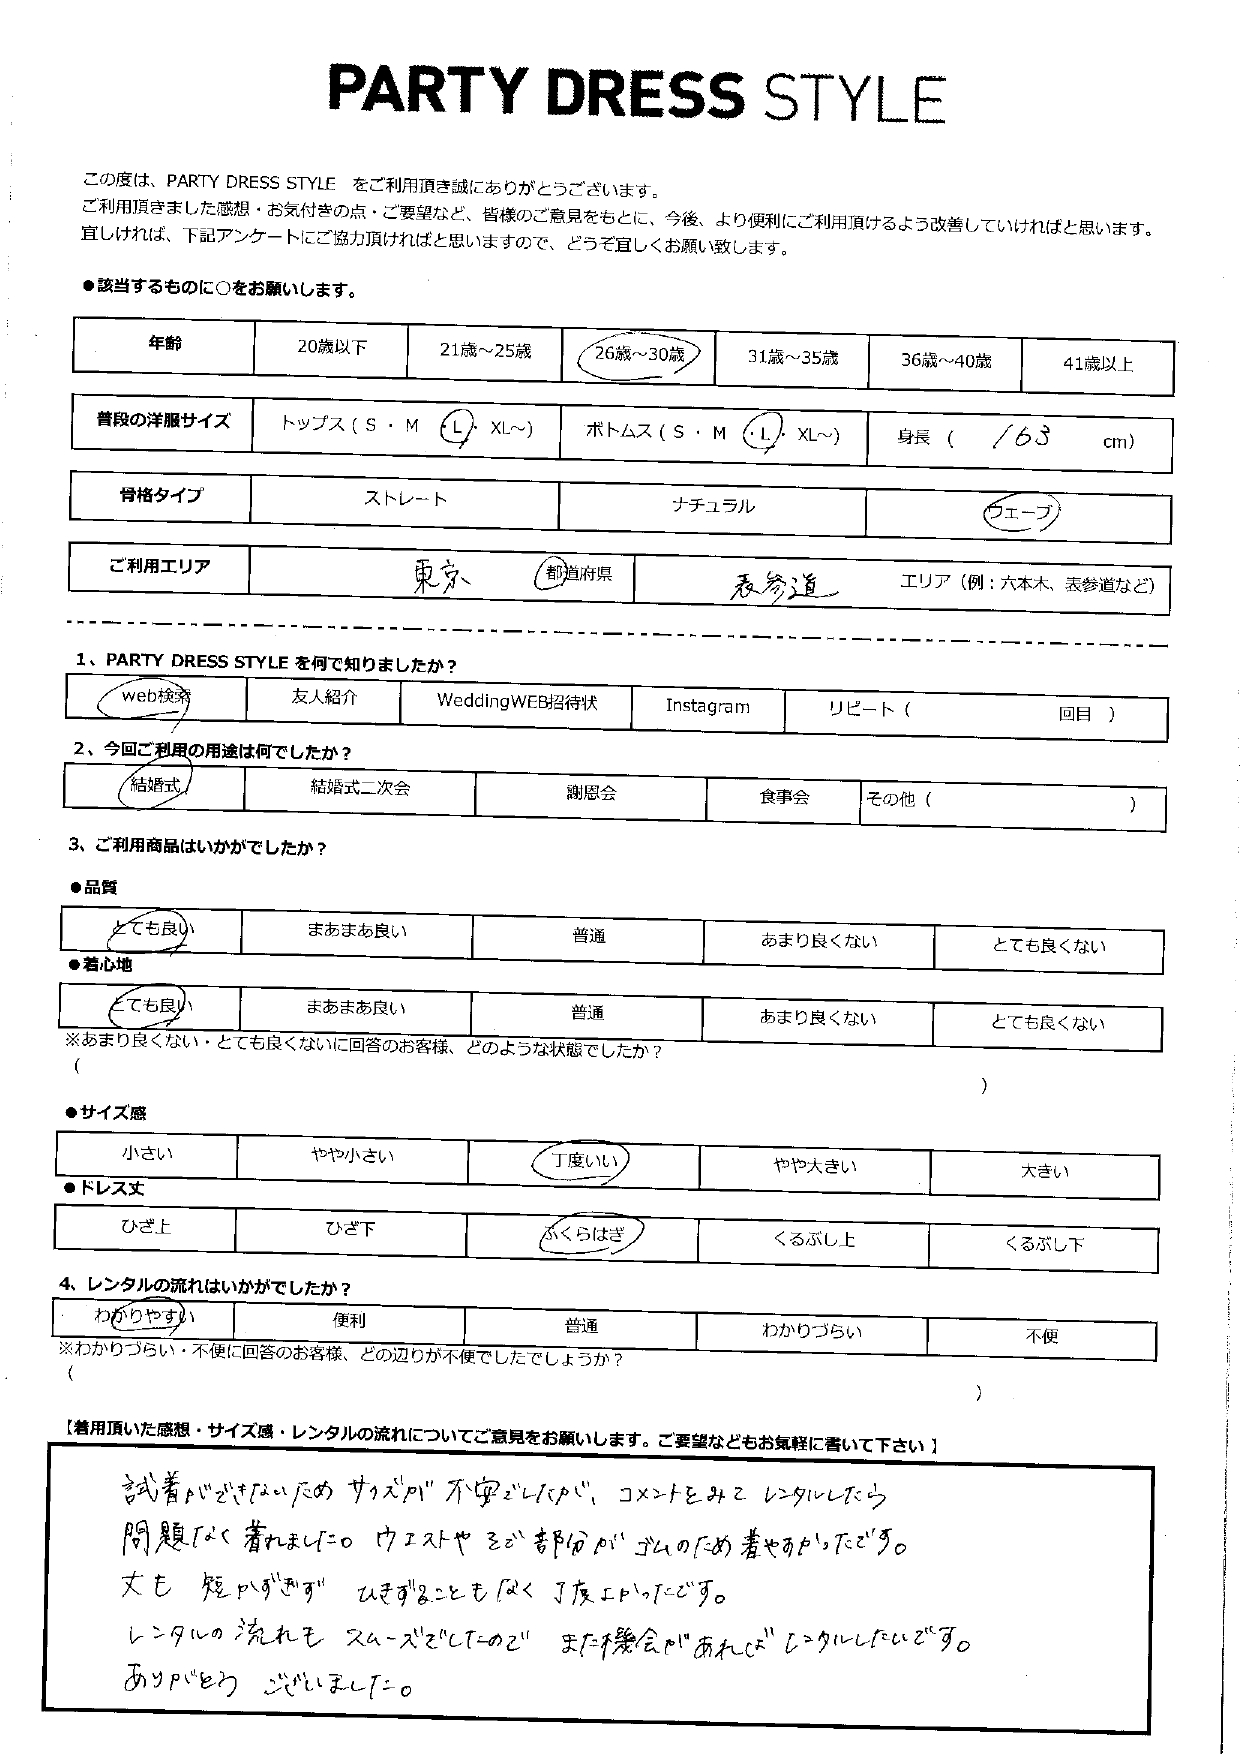 PARTY DRESS STYLE
この度は、PARTY DRESS STYLE をご利用頂き誠にありがとうございます。
ご利用頂きました感想・お気付きの点・ご要望など、皆様のご意見をもとに、今後、より便利にご利用頂けるよう改善していければと思います。
宜しければ、下記アンケートにご協力頂ければと思いますので、どうぞ宜しくお願い致します。
●該当するものに○をお願いします。
年齢 20歳以下 21歳～25歳 26歳～30歳 31歳～35歳 36歳～40歳 41歳以上
普段の洋服サイズ トップス ( S ・ M ・L・ XL～) ボトムス ( S ・ M ・L・ XL～) 身長 ( 163 cm)
骨格タイプ ストレート ナチュラル ウェーブ
ご利用エリア 東京 都道府県 表参道 エリア（例：六本木、表参道など）
1、PARTY DRESS STYLE を何で知りましたか？
web検索 友人紹介 WeddingWEB招待状 Instagram リピート ( 回目 )
2、今回ご利用の用途は何でしたか？
結婚式 結婚式二次会 謝恩会 食事会 その他 ( )
3、ご利用商品はいかがでしたか？
●品質
とても良い まあまあ良い 普通 あまり良くない とても良くない
●着心地
とても良い まあまあ良い 普通 あまり良くない とても良くない
※あまり良くない・とても良くないに回答のお客様、どのような状態でしたか？
( )
●サイズ感
小さい やや小さい 丁度いい やや大きい 大きい
●ドレス丈
ひざ上 ひざ下 ふくらはぎ くるぶし上 くるぶし下
4、レンタルの流れはいかがでしたか？
わかりやすい 便利 普通 わかりづらい 不便
※わかりづらい・不便に回答のお客様、どの辺りが不便でしたでしょうか？
( )
【着用頂いた感想・サイズ感・レンタルの流れについてご意見をお願いします。ご要望などもお気軽に書いて下さい】
試着ができないため サイズが 不安でしたが、コメントをみて レンタルしたら
問題なく 着れました。 ウエストや そで 部分が ゴムのため 着やすかったです。
丈も 短かすぎず ひきずることもなく 丁度よかったです。
レンタルの流れも スムーズでしたので また機会があれば レンタルしたいです。
ありがとう ございました。